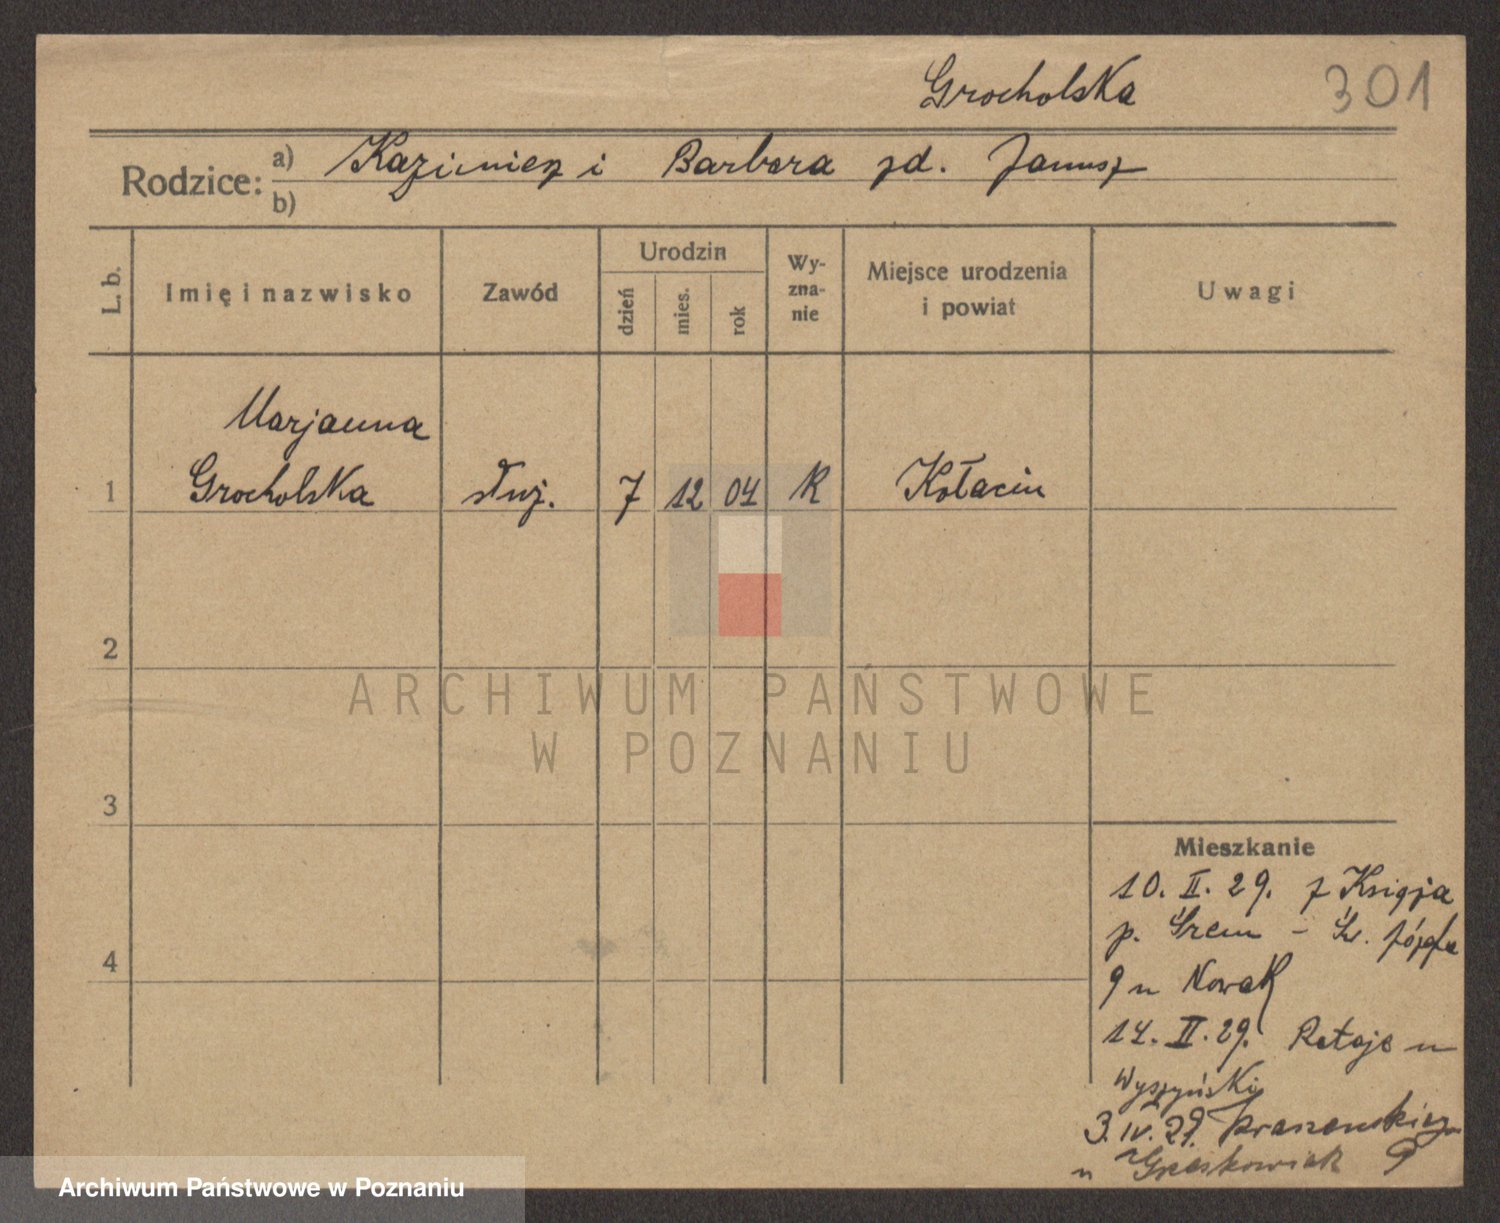 Grocholska 301
Rodzice: a) Kazimierz i Barbara zd. Janusz
b)
L. b. Imię i nazwisko Zawód Urodzin dzień mies. rok Wyznanie Miejsce urodzenia i powiat Uwagi
Marjanna
1 Grocholska służ. 7 12 04 R Kołacin
2
3
4
Mieszkanie
10. II. 29. z Książa
p. Śrem - Św. Józefa
9 u Nowak
14. II. 29. Rataje u
Wyszyński
3. IV. 29.
u 9
ARCHIWUM PAŃSTWOWE
W POZNANIU
Archiwum Państwowe w Poznaniu